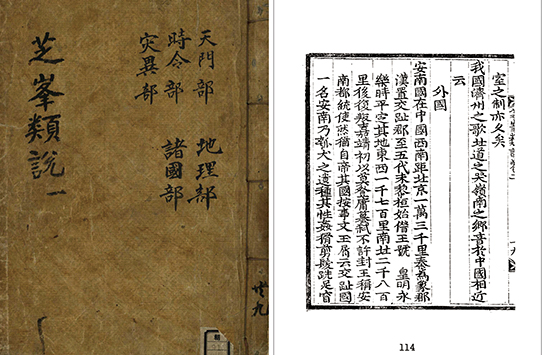 天門部 地理部
時令部 諸國部
災異部
芝峯類說 一
室之制亦久矣
我國濟州之歌北道之哭嶺南之鄕音於中國相近
云
外國
安南國在中國西南距北京一萬三千里秦爲象郡
漢置交趾郡至五代末黎桓始僭王號 皇明永
樂時平定其地東西一千七百里南北二千八百
里後復叛嘉靖初以莫登庸簒弑不許封王稱安
南都統使然猶自帝其國按事文玉屑云交趾國
一名安南乃瓠犬之遺種其性姦猾剪髮跣足官
114